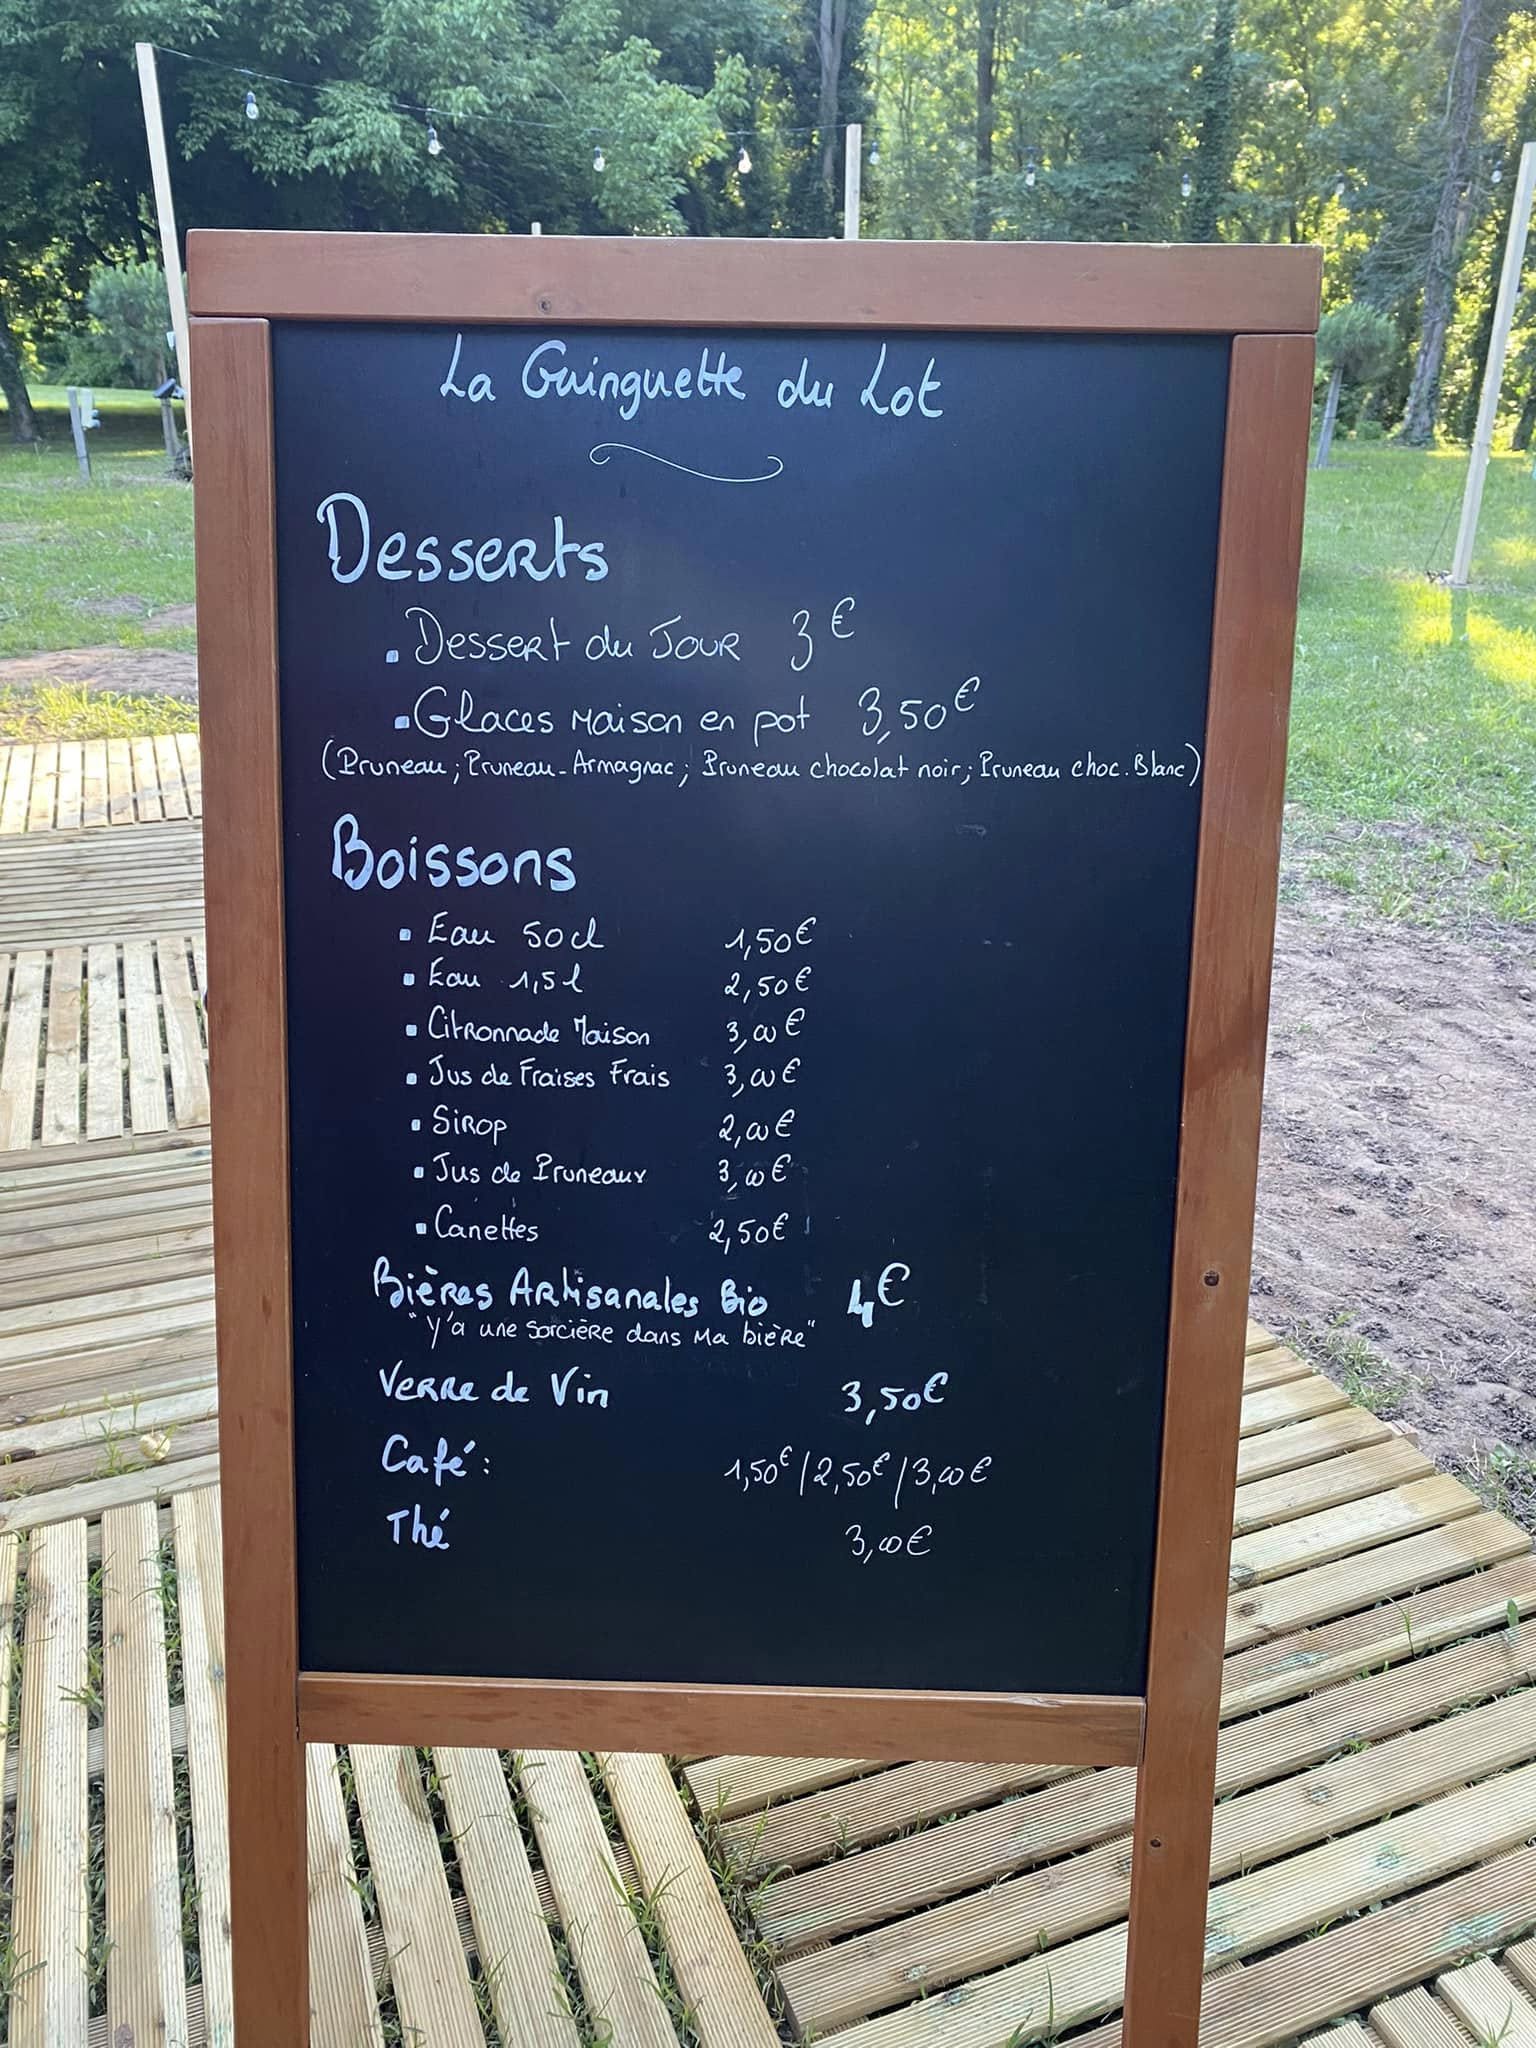 La Guinguette du Lot
Desserts
. Dessert du Jour 3€
. Glaces Maison en pot 3,50€
(Pruneau; Pruneau-Armagnac; Pruneau chocolat noir; Pruneau choc. Blanc)
Boissons
. Eau 50cl 1,50€
. Eau 1,5l 2,50€
. Citronnade Maison 3,00€
. Jus de Fraises Frais 3,00€
. Sirop 2,00€
. Jus de Pruneaux 3,00€
. Canettes 2,50€
Bières Artisanales Bio 4€
"Y'a une sorcière dans ma bière"
Verre de Vin 3,50€
Café: 1,50€/2,50€/3,00€
Thé 3,00€